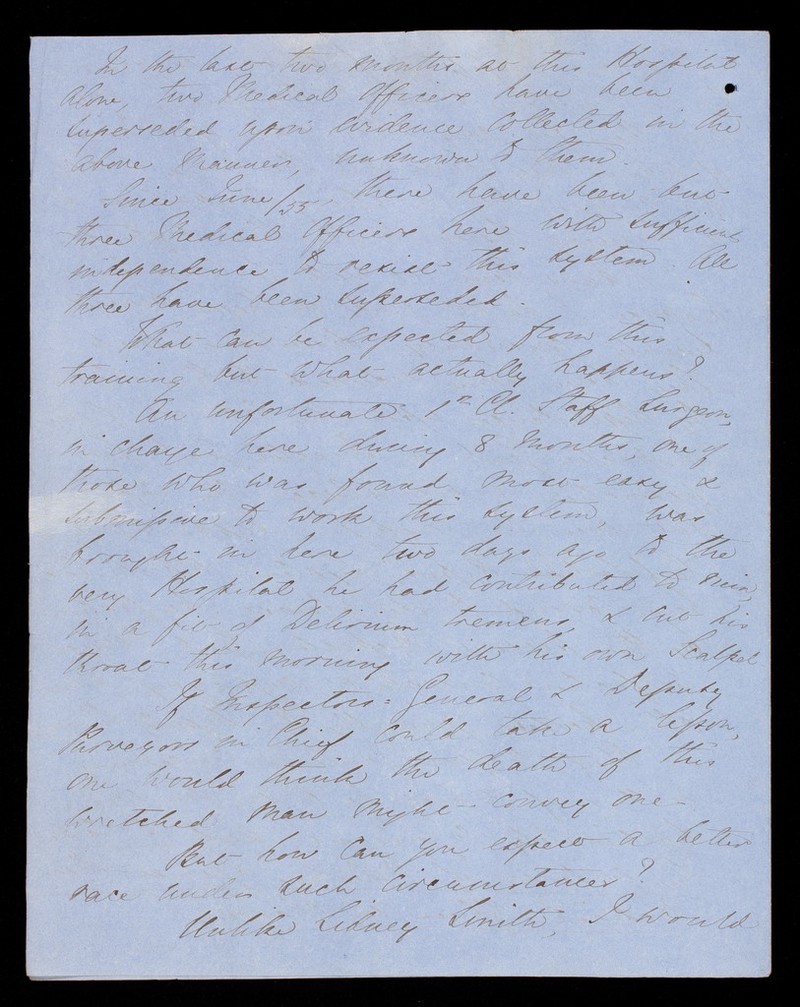 In the last two months at this Hospital
alone, two Medical Officers have been
superseded upon evidence collected in the
above manner, unknown to them.
Since June/55, there have been but
three Medical Officers here with sufficient
independence to resist this system. All
three have been superseded.
What can be expected from this
training but what actually happens?
An unfortunate 1st Cl. Staff Surgeon,
in charge here during 8 months, one of
those who was found most easy &
submissive to work this system, was
brought in here two days ago to the
very Hospital he had contributed to ruin,
in a fit of Delirium tremens, & cut his
throat this morning with his own Scalpel
If Inspectors-General & Deputy
Purveyors in Chief could take a lesson,
one would think the death of this
wretched man might convey one-
But how can you expect a better
race under such circumstances?
Unlike Sidney Smith, I would